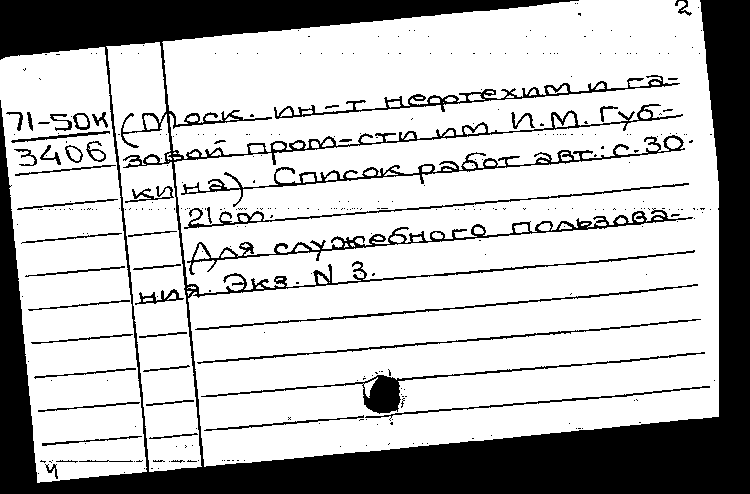 2
71-50к (Моск. ин-т нефтехим и га-
3406 зовой пром-сти им. И.М. Губ-
кина). Список работ авт.: с.30.
21 cm.
Для служебного пользова-
ния. Экз. N 3.
ч